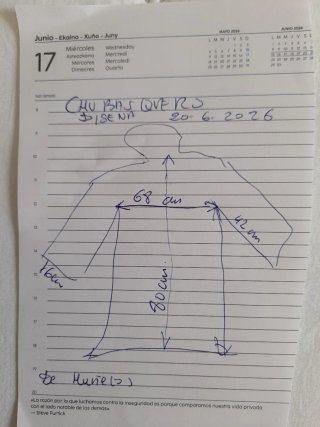 Junio - Ekaina - Xuño - Juny
17
Miércoles Wednesday
Asteazkena Mercredi
Mércores Mercoledì
Dimecres Quarta
MAYO 2026
JUNIO 2026
L M M J V S D
L M M J V S D
CHUBASQUERO
20-6-2026
68 cm
42 cm
16cm
80 cm.
«La razón por la que luchamos contra la inseguridad es porque comparamos nuestra vida privada
con el lado notable de los demás».
— Steve Furtick